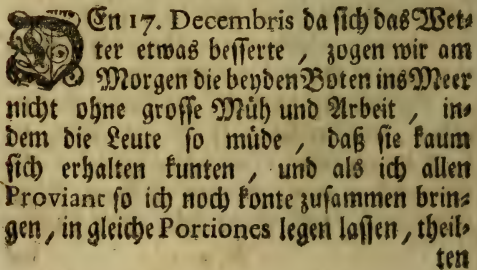 DEn 17. Decembris da sich das Wet-
ter etwas besserte, zogen wir am
Morgen die beyden Boten ins Meer
nicht ohne grosse Müh und Arbeit, in-
dem die Leute so müde, daß sie kaum
sich erhalten kunten, und als ich allen
Proviant so ich noch konte zusammen brin-
gen, in gleiche Portiones legen lassen, theil-
ten